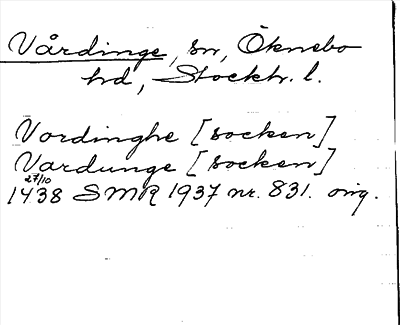 Vårdinge, sn, Öknebo
hd, Stockh. l.
Vordinghe [socken]
Vardunge [socken]
27/10
1438 SMR 1937 nr. 831. orig.